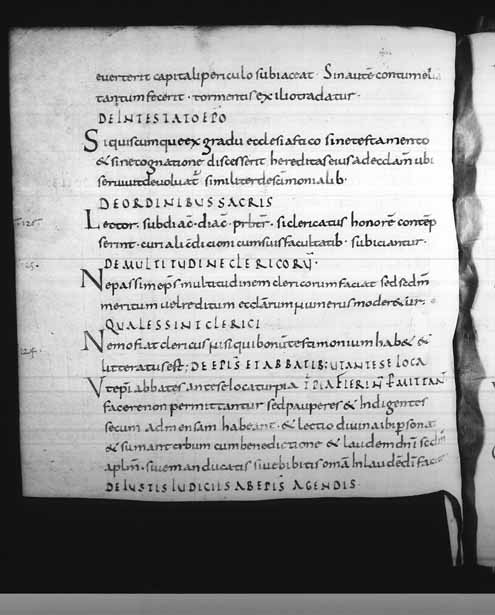 everterit capitali periculo subiaceat · Sin autē contumelia
tantum fecerit · tormentis & exilio tradatur ·
DE INTESTATO EPO
Siquiscumque ex gradu ecclesiastico sine testamento
& sine cognatione discesserit hereditas eius ad ecclam ubi
seruiuit deuoluat similiter de scimonialib·
DE ORDINIBUS SACRIS
Lector · subdiac · diac · prbtr · si clericatus honorē contēp
serint · curiali condicioni cum suis facultatib · subiciantur ·
DE MULTITUDINE CLERICORŪ ·
Ne passim eps multitudinem clericorum faciat sed scdm
meritum uel reditum ecclarum numerus moderetur ·
QUALES SINT CLERICI
Nemo fiat clericus nisi qui bonū testimonium habet &
litteratus est ; DE EPIS ET ABBATIB; UT ANTE SE LOCA
Ut epi abbates ante se loca turpia
facere non permittantur sed pauperes & Indigentes
secum ad mensam habeant · & lectio diuina ibi psonat
& sumant cibum cum benedictione & laudem dni scdm
aplm · siue manducatis siue bibitis omā In laudē dī facite
DE IUSTIS IUDICIIS AB EPIS AGENDIS ·